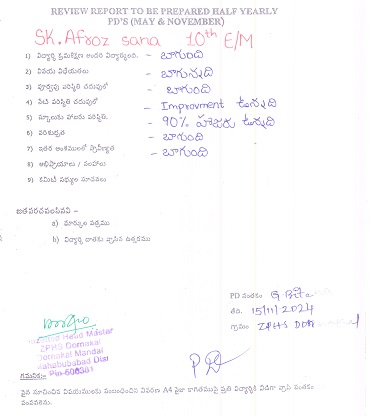 REVIEW REPORT TO BE PREPARED HALF YEARLY
PD'S (MAY & NOVEMBER)
SK. Afroz sana 10th E/M
1) విద్యార్థి క్రమశిక్షణ - బాగుంది
2) విషయ - బాగున్నది
3) పూర్వపు పరిస్థితి చదువులో - బాగుంది
4) నేటి పరిస్థితి చదువులో - Improvment ఉన్నది
5) స్కూలుకు హాజరు పరిస్థితి. - 90% హాజరు ఉన్నది
6) పరిశుభ్రత - బాగుంది
7) ఇతర అంశములలో ప్రావీణ్యత - బాగుంది
8) అభిప్రాయాలు / సలహాలు
9) కమిటీ సభ్యుల సూచనలు
జతపరచవలసినవి –
a) మార్కుల పత్రము
b) విద్యార్థి దాతకు వ్రాసిన ఉత్తరము
PD సంతకం
తేది. 15/11/2024
గ్రామం ZPHS
Head Master
ZPHS Dornakal
Dornakal Mandal
Mahabubabad Dist
Pin-506381
గమనిక:-
పైన సూచించిన విషయములకు సంబంధించిన వివరణ A4 సైజు కాగితముపై ప్రతి విద్యార్థికి విడిగా వ్రాసి సంతకం